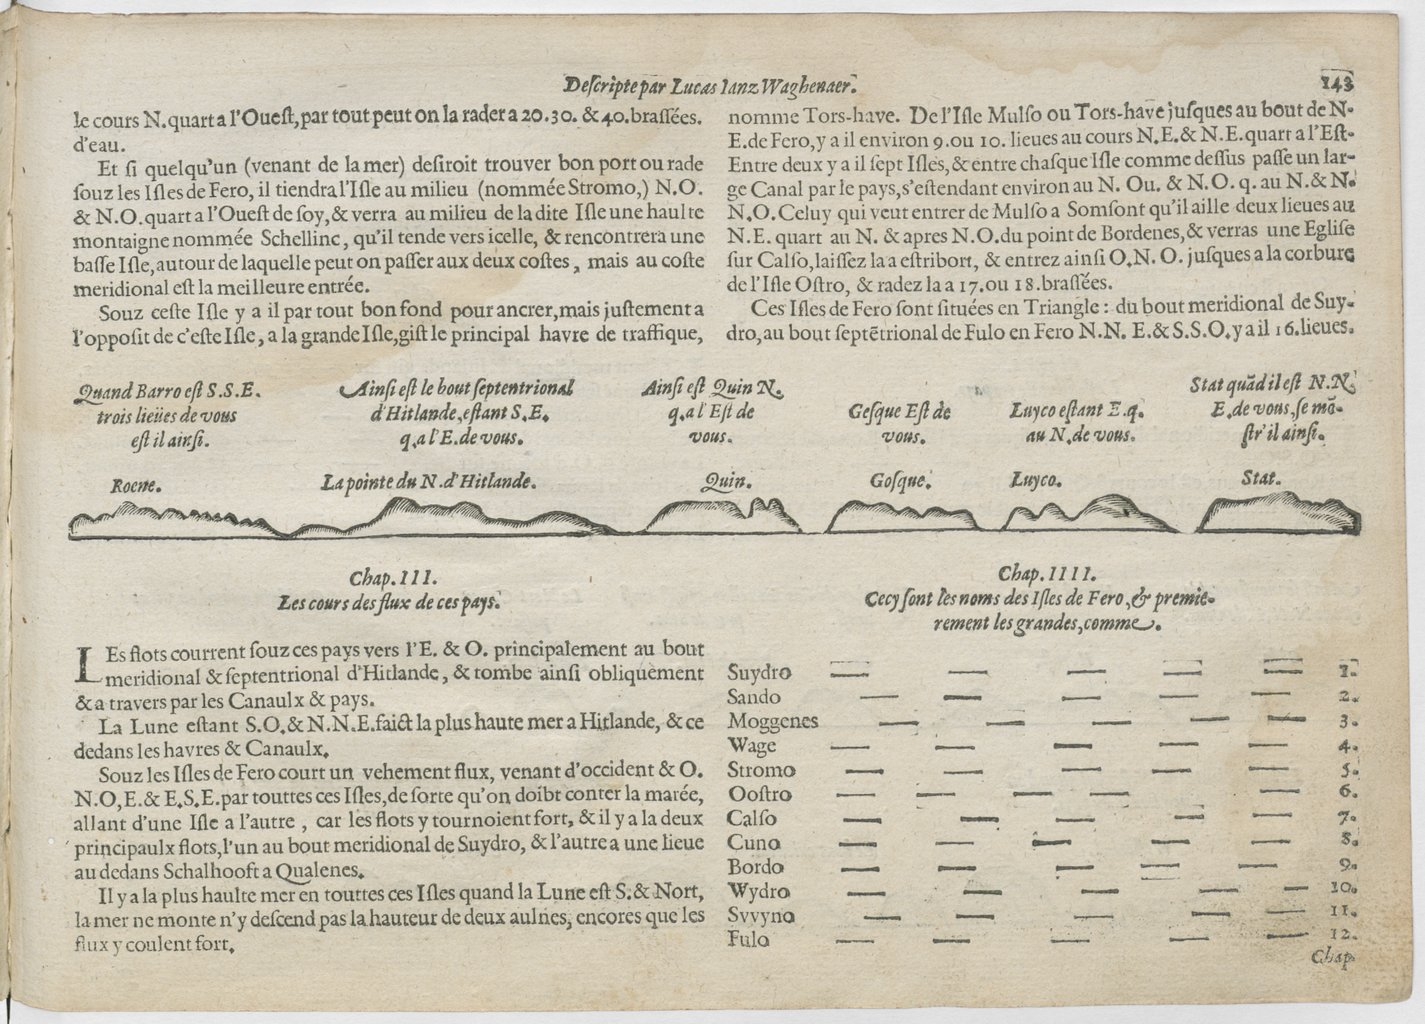 Descripte par Lucas Ianz Waghenaer.
143
le cours N. quart a l'Ouest, par tout peut on la rader a 20. 30. & 40. brassées.
d'eau.
Et si quelqu'un (venant de la mer) desiroit trouver bon port ou rade
souz les Isles de Fero, il tiendra l'Isle au milieu (nommée Stromo,) N. O.
& N. O. quart a l'Ouest de soy, & verra au milieu de la dite Isle une haulte
montaigne nommée Schellinc, qu'il tende vers icelle, & rencontrera une
basse Isle, autour de laquelle peut on passer aux deux costes, mais au coste
meridional est la meilleure entrée.
Souz ceste Isle y a il par tout bon fond pour ancrer, mais justement a
l'opposit de c'este Isle, a la grande Isle, gist le principal havre de traffique,
nomme Tors-have. De l'Isle Mulso ou Tors-have jusques au bout de N.
E. de Fero, y a il environ 9. ou 10. lieues au cours N. E. & N. E. quart a l'Est.
Entre deux y a il sept Isles, & entre chasque Isle comme dessus passe un lar-
ge Canal par le pays, s'estendant environ au N. Ou. & N. O. q. au N. & N.
N. O. Celuy qui veut entrer de Mulso a Somsont qu'il aille deux lieues au
N. E. quart au N. & apres N. O. du point de Bordenes, & verras une Eglise
sur Calso, laissez la a estribort, & entrez ainsi O. N. O. jusques a la corbure
de l'Isle Ostro, & radez la a 17. ou 18. brassées.
Ces Isles de Fero sont situées en Triangle: du bout meridional de Suy-
dro, au bout septētrional de Fulo en Fero N. N. E. & S. S. O. y a il 16. lieues.
Quand Barro est S. S. E.
trois lieües de vous
est il ainsi.
Ainsi est le bout septentrional
d'Hitlande, estant S. E.
q. a l'E. de vous.
Ainsi est Quin N.
q. a l'Est de
vous.
Gesque Est de
vous.
Luyco estant E. q.
au N. de vous.
Stat quād il est N. N.
E. de vous, se mō-
str' il ainsi.
Roene.
La pointe du N. d'Hitlande.
Quin.
Gosque.
Luyco.
Stat.
Chap. III.
Les cours des flux de ces pays.
LEs flots courrent souz ces pays vers l'E. & O. principalement au bout
meridional & septentrional d'Hitlande, & tombe ainsi obliquement
& a travers par les Canaulx & pays.
La Lune estant S. O. & N. N. E. faict la plus haute mer a Hitlande, & ce
dedans les havres & Canaulx.
Souz les Isles de Fero court un vehement flux, venant d'occident & O.
N. O, E. & E. S. E. par touttes ces Isles, de sorte qu'on doibt conter la marée,
allant d'une Isle a l'autre, car les flots y tournoient fort, & il y a la deux
principaulx flots, l'un au bout meridional de Suydro, & l'autre a une lieue
au dedans Schalhooft a Qualenes.
Il y a la plus haulte mer en touttes ces Isles quand la Lune est S. & Nort,
la mer ne monte n'y descend pas la hauteur de deux aulnes, encores que les
flux y coulent fort.
Chap. IIII.
Cecy sont les noms des Isles de Fero, & premie-
rement les grandes, comme.
Suydro 1.
Sando 2.
Moggenes 3.
Wage 4.
Stromo 5.
Oostro 6.
Calso 7.
Cuno 8.
Bordo 9.
Wydro 10.
Svvyno 11.
Fulo 12.
Chap.